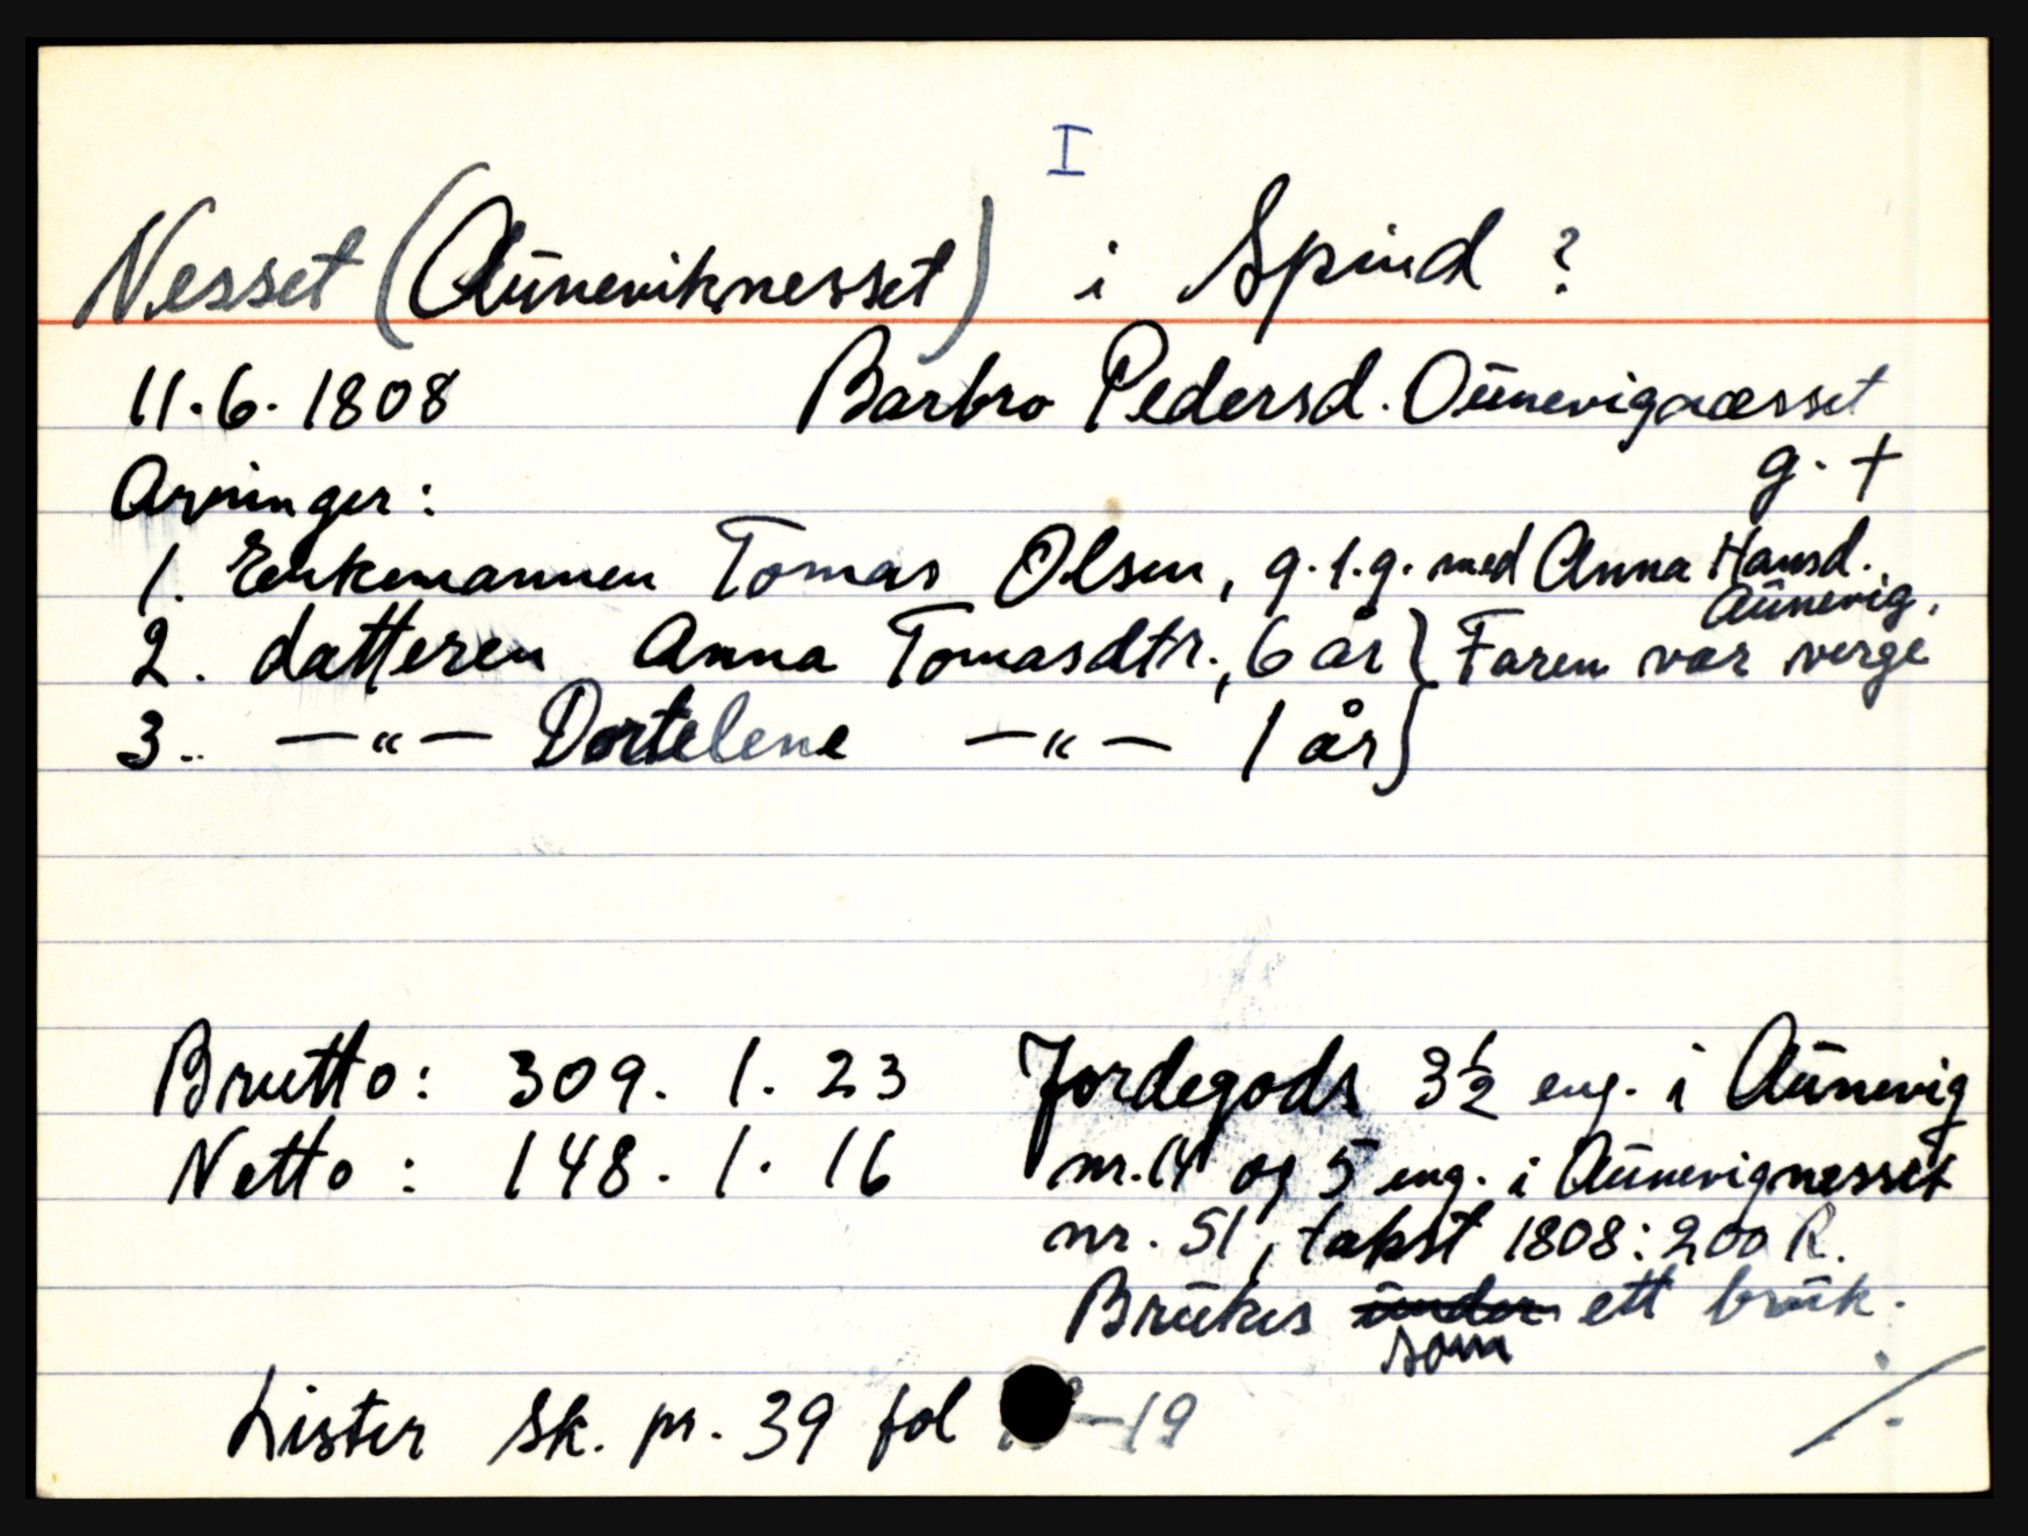 I
Nesset (Aŭneviknesset) i Spind ?
11.6.1808 Barbro Pedersd. Oŭnevignæsset
g. +
Arvinger:
1. Enkemannen Tomas Olsen, g.1.g. med Anna Hansd.
Aŭnevig.
2. datteren Anna Tomasdtr., 6 år } Faren var verge
3. —"— Dortelene —"— 1 år }
Brutto: 309. 1. 23 Jordegods 3½ eng. i Aŭnevig
Netto: 148. 1. 16 nr. 14 og 5 eng. i Aŭnevignesset
nr. 51, takst 1808: 200 R.
Brŭkes ŭnder ett brŭk.
som
Lister Sk. pr. 39 fol –19
./.